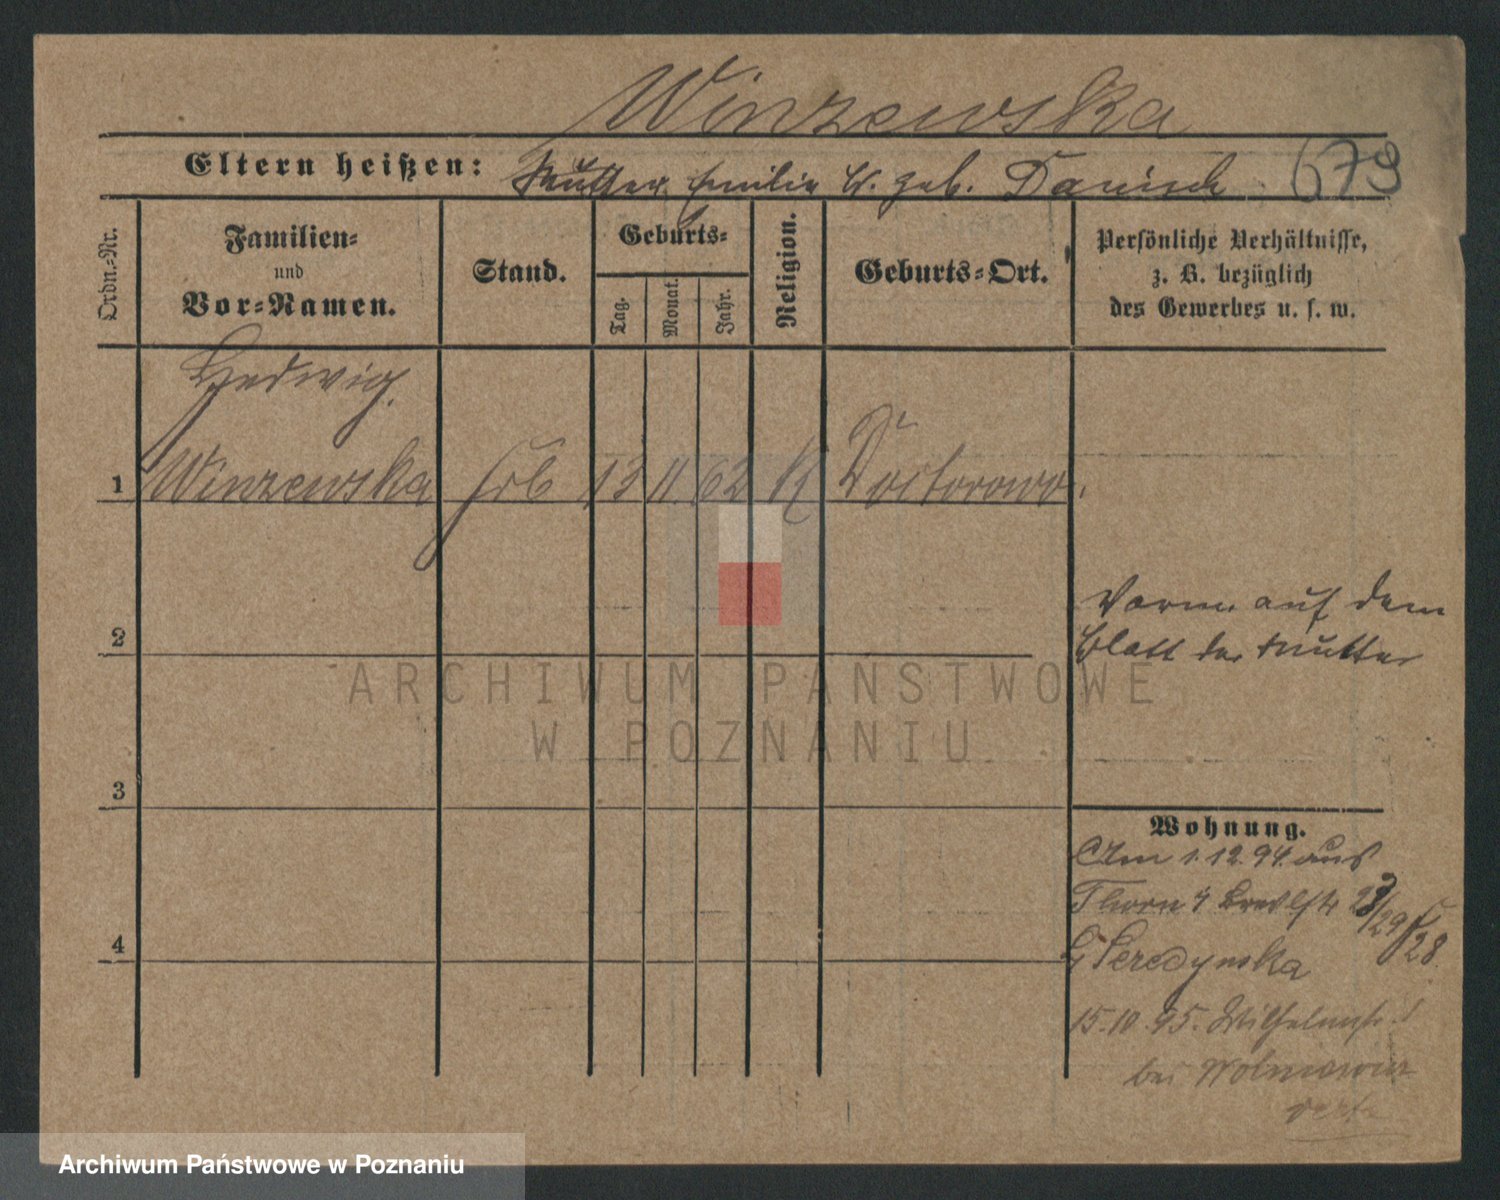 Winzewska
Eltern heißen: Mutter Emilie W. geb. Danisch 679
Ordn.-Nr.
Familien-
und
Vor-Namen.
Stand.
Geburts-
Tag.
Monat.
Jahr.
Religion.
Geburts-Ort.
Persönliche Verhältnisse,
z. B. bezüglich
des Gewerbes u. s. w.
Hedwig.
1 Winzewska 13 11 62 K
2
Vorm. auf dem
Blatt der Mutter
3
4
Wohnung.
Am 1.12.94 aus
Thorn
28
15.10.95. Wilhelmstr.
bei
ARCHIWUM PAŃSTWOWE
W POZNANIU
Archiwum Państwowe w Poznaniu